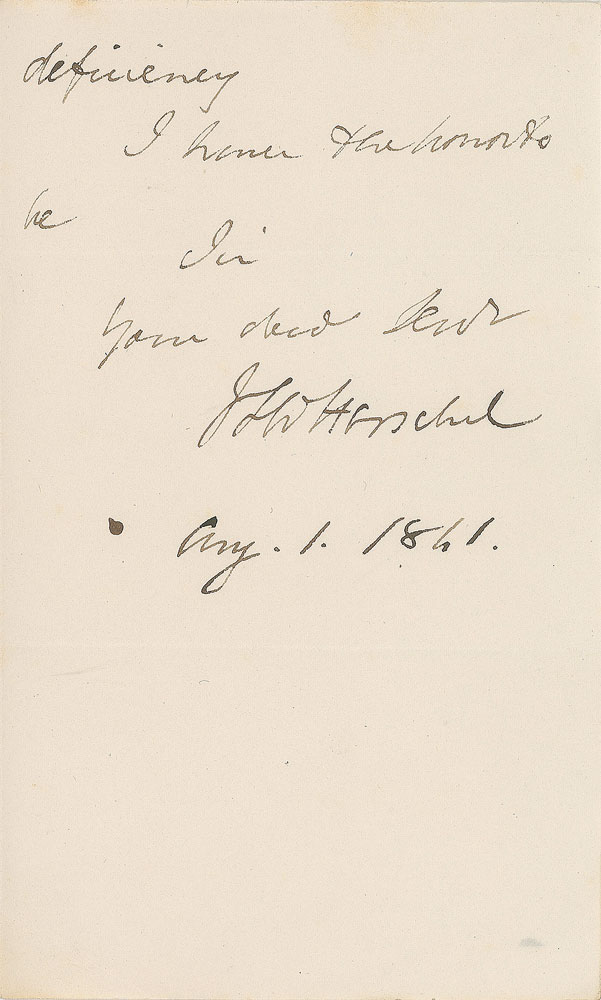 deficiency
I have the honor to
be
Sir
Your obed Servt
JFWHerschel
Aug. 1. 1861.